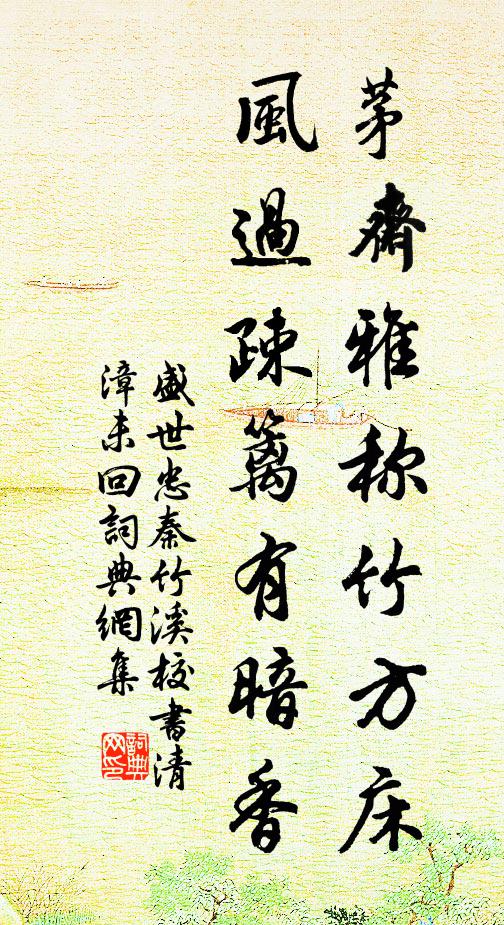 茅齋雅称竹方床
風過疎篱有暗香
盛世忠秦竹溪校書清
漳未回詞典網集
詞典网印